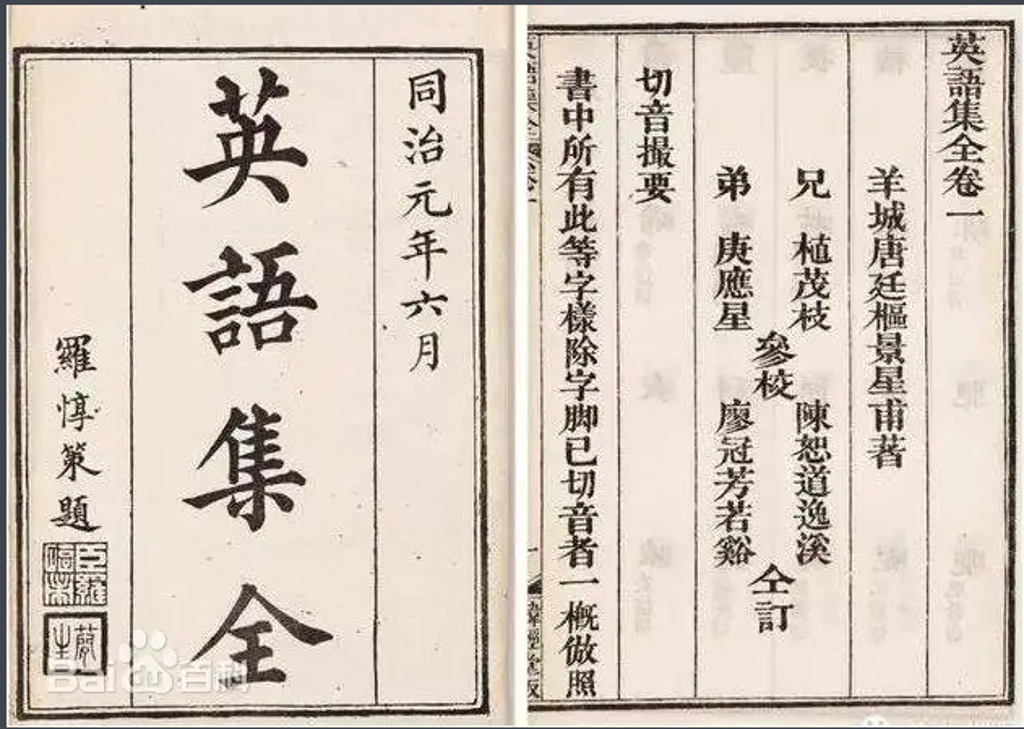 同治元年六月
英語集全
羅惇策題
英語集全卷一
羊城唐廷樞景星甫著
兄 植茂枝
弟 庚應星
參校
陳恕道逸溪
廖冠芳若谿
仝訂
切音撮要
書中所有此等字樣除字脚已切音者一概倣照
Bai百科